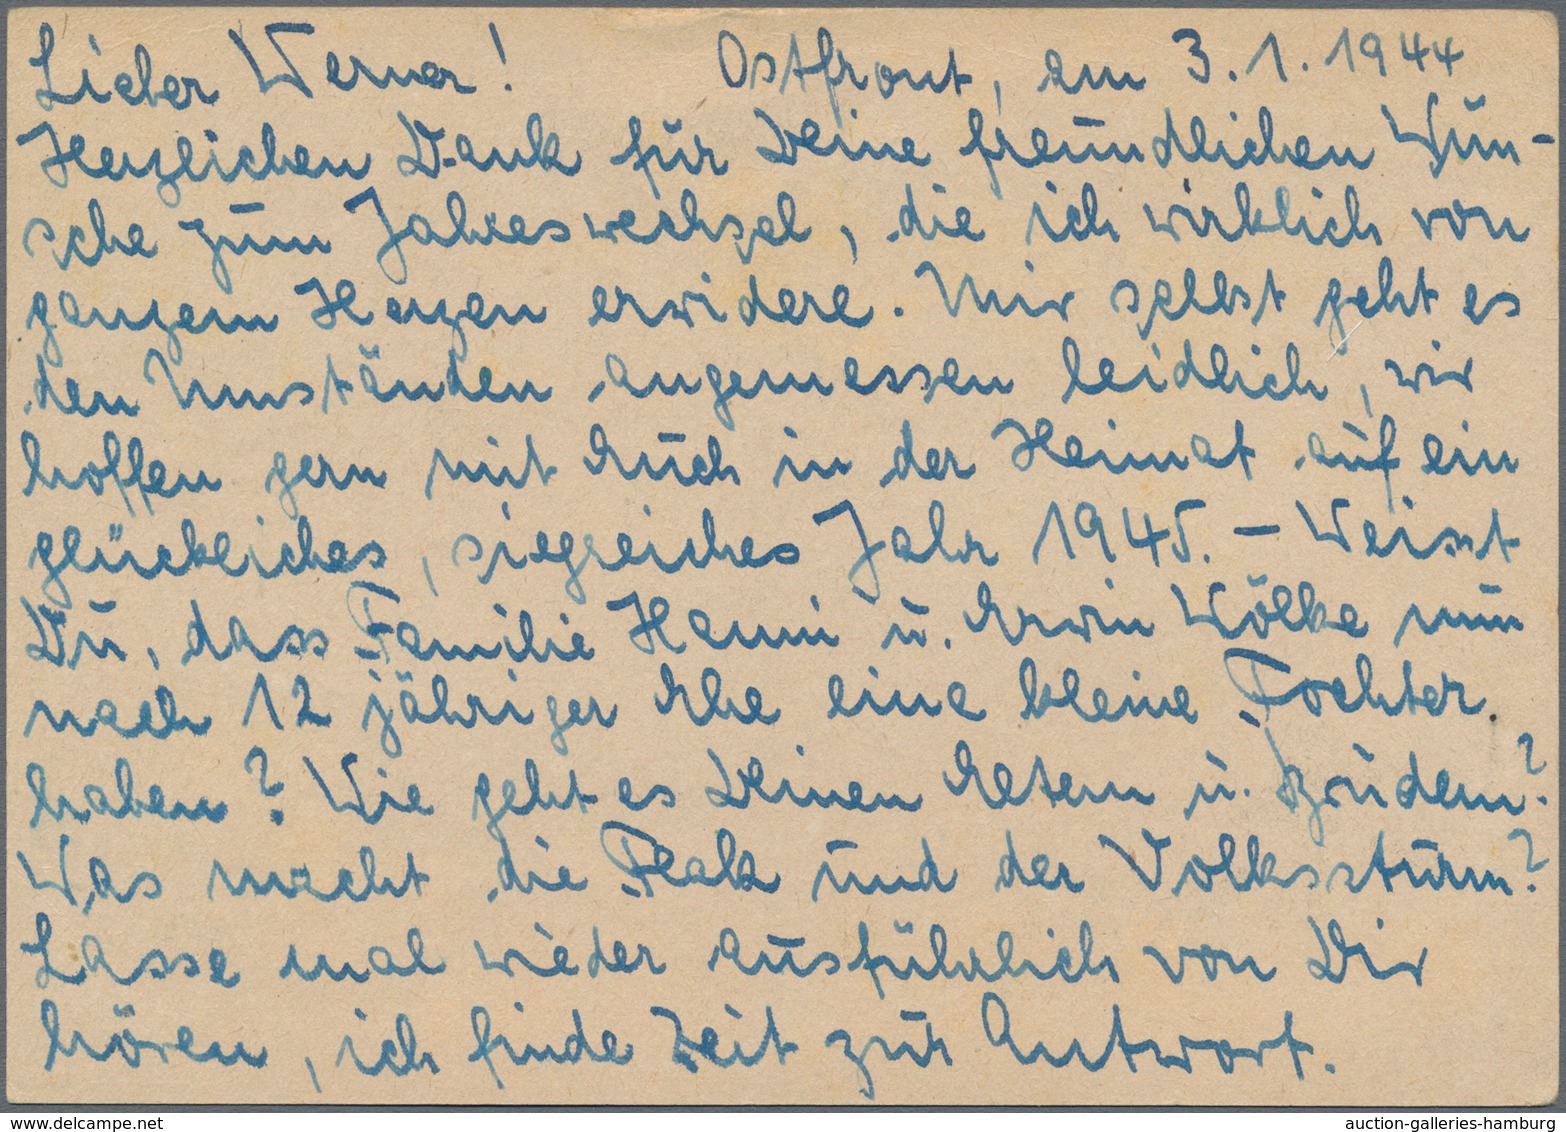 Lieber Werner! Ostfront, am 3.1.1944
Herzlichen Dank für Deine freundlichen Wün-
sche zum Jahreswechsel, die ich wirklich von
ganzem Herzen erwidere. Mir selbst geht es
den Umständen angemessen leidlich, wir
hoffen gern mit Euch in der Heimat auf ein
glückliches, siegreiches Jahr 1945. – Weisst
Du, dass Familie Hanni u. Erwin Wölke nun
nach 12 jähriger Ehe eine kleine Tochter
haben? Wie geht es Deinen Eltern u. Brüdern?
Was macht die Flak und der Volkssturm?
Lasse mal wieder ausführlich von Dir
hören, ich finde Zeit zur Antwort.
www.delcampe.net
auction-galleries-hamburg